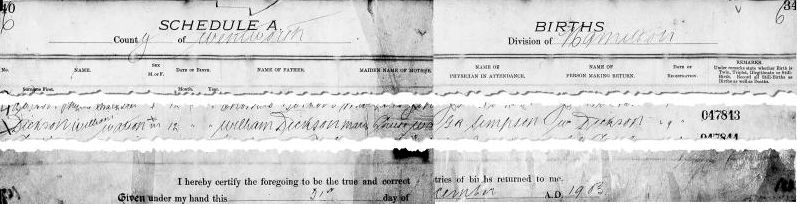 40 SCHEDULE A. BIRTHS 34
6 County of Wentworth Division of Hamilton 6
No. NAME. SEX M. or F. DATE OF BIRTH. NAME OF FATHER. MAIDEN NAME OF MOTHER. NAME OF PHYSICIAN IN ATTENDANCE. NAME OF PERSON MAKING RETURN. DATE OF REGISTRATION. REMARKS. Under remarks state whether Birth is Twin, Triplet, Illegitimate or Still-Birth. Record all Still-Births as Births as well as Deaths.
Surname First. Month. Year.
Dickson William Watson m 12 " " William Dickson Simpson Dickson " 9 " 047843
047844
I hereby certify the foregoing to be the true and correct tries of bir hs returned to me.
Given under my hand this 31st day of cember A.D. 1903